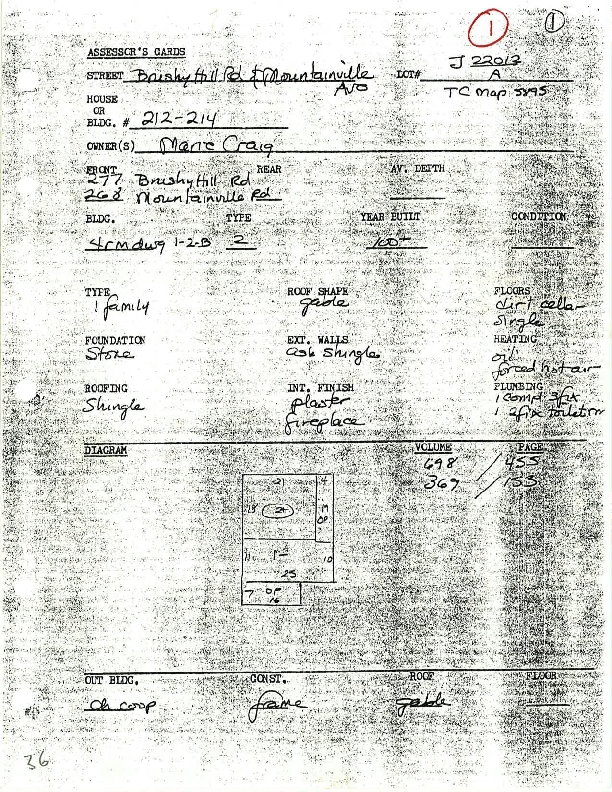 1 1
ASSESSOR'S CARDS
J 22013
STREET Brushy Hill Rd & Mountainville LOT# A
Ave
TC Map 5895
HOUSE
OR
BLDG. # 212-214
OWNER(S) Marie Craig
FRONT REAR AV. DEPTH
277 Brushy Hill Rd
268 Mountainville Rd
BLDG. TYPE YEAR BUILT CONDITION
4rmdwg 1-2-B 2 100+
TYPE ROOF SHAPE FLOORS
1 family gable dirt cellar
single
FOUNDATION EXT. WALLS HEATING
Stone asb shingle oil
forced hot air
ROOFING INT. FINISH PLUMBING
Shingle plaster 1 comp 3fix
fireplace 1 2fix toiletrm
DIAGRAM VOLUME PAGE
698 / 455
369 / 153
21 4
18 OP
11 10
25
7 OP
16
OUT BLDG. CONST. ROOF FLOOR
ch coop frame gable
36